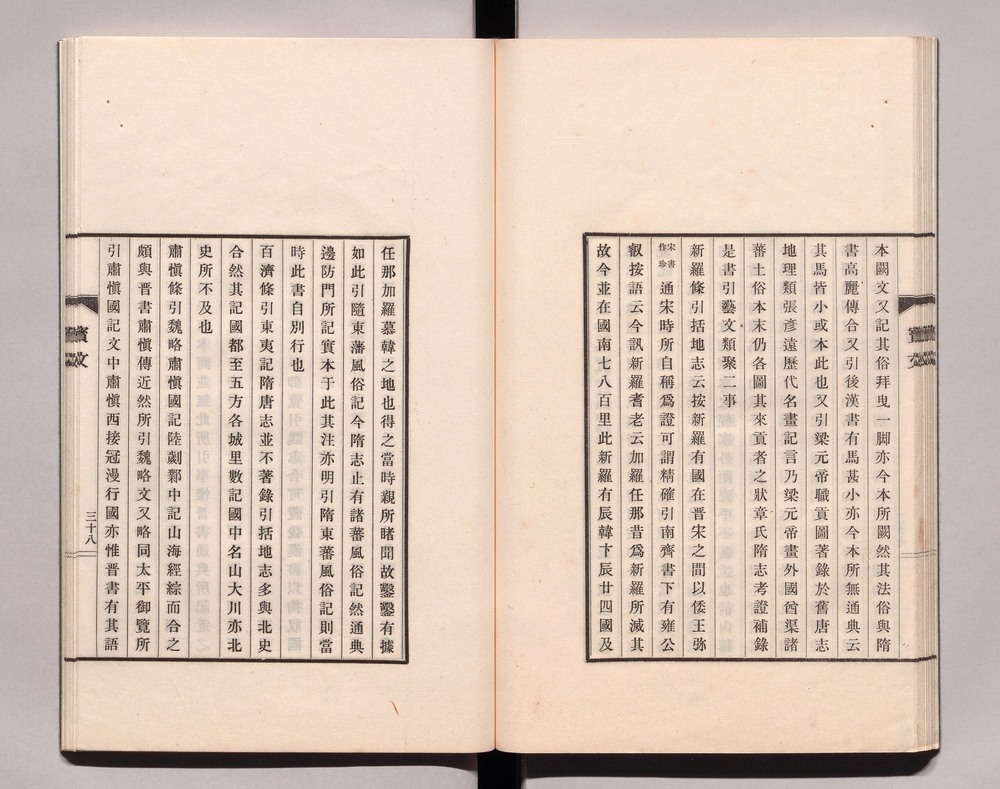 本闕文又記其俗拜曳一脚亦今本所闕然其法俗與隋
書高麗傳合又引後漢書有馬甚小亦今本所無通典云
其馬皆小或本此也又引梁元帝職貢圖著錄於舊唐志
地理類張彥遠歷代名畫記言乃梁元帝畫外國酋渠諸
蕃土俗本末仍各圖其來貢者之狀章氏隋志考證補錄
是書引藝文類聚二事
新羅條引括地志云按新羅有國在晉宋之間以倭王弥
宋書作珍通宋時所自稱爲證可謂精確引南齊書下有雍公
叡按語云今訊新羅耆老云加羅任那昔爲新羅所滅其
故今並在國南七八百里此新羅有辰韓卞辰廿四國及
任那加羅慕韓之地也得之當時親所睹聞故鑿鑿有據
如此引隨東藩風俗記今隋志止有諸蕃風俗記然通典
邊防門所記實本于此其注亦明引隋東蕃風俗記則當
時此書自別行也
百濟條引東夷記隋唐志並不著錄引括地志多與北史
合然其記國都至五方各城里數記國中名山大川亦北
史所不及也
肅愼條引魏略肅愼國記陸翽鄴中記山海經綜而合之
頗與晉書肅愼傳近然所引魏略文又略同太平御覽所
引肅愼國記文中肅愼西接冠漫行國亦惟晉書有其語
三十八